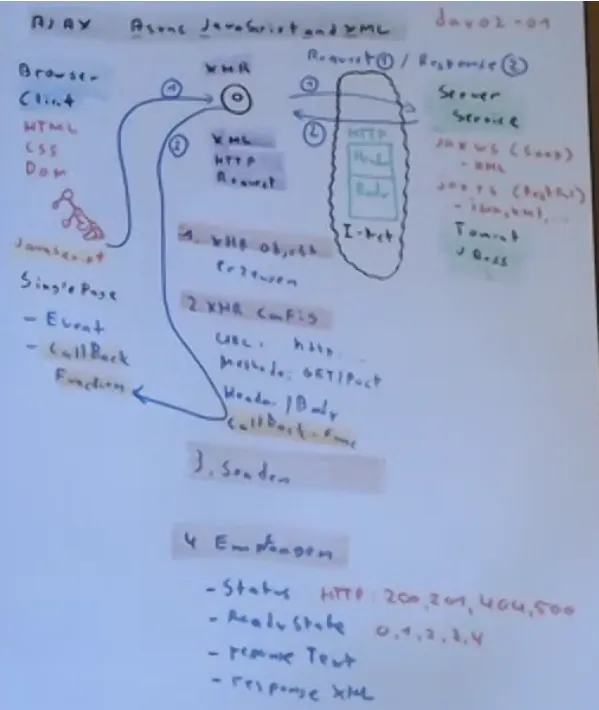 AJAX Async JavaScript and XML
dav02-01
Request ① / Response ②
Browser
Client
HTML
CSS
Dom
JavaScript
SinglePage
- Event
- CallBack
Function
①
②
XHR
O
XML
HTTP
Request
①
②
HTTP
Head
Body
I-net
Server
Service
JAX WS (Soap)
- XML
JAX RS (Restful)
- json, xml, ...
Tomcat
J Boss
1. XHR Objekt
erzeugen
2 XHR Config
URL: http...
Methode: GET/Post
Header / Body
CallBack-Func
3. Senden
4 Empfangen
- Status HTTP: 200, 201, 404, 500
- ReadyState 0, 1, 2, 3, 4
- response Text
- response XML